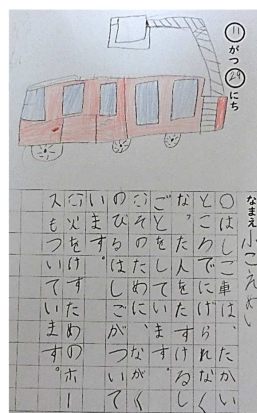 11がつ29にち
なまえ
○はしご車は、たかい
ところでにげられなく
なった人をたすけるし
ごとをしています。
○そのために、ながく
のびるはしごがついて
います。
○火をけすためのホー
スもついています。